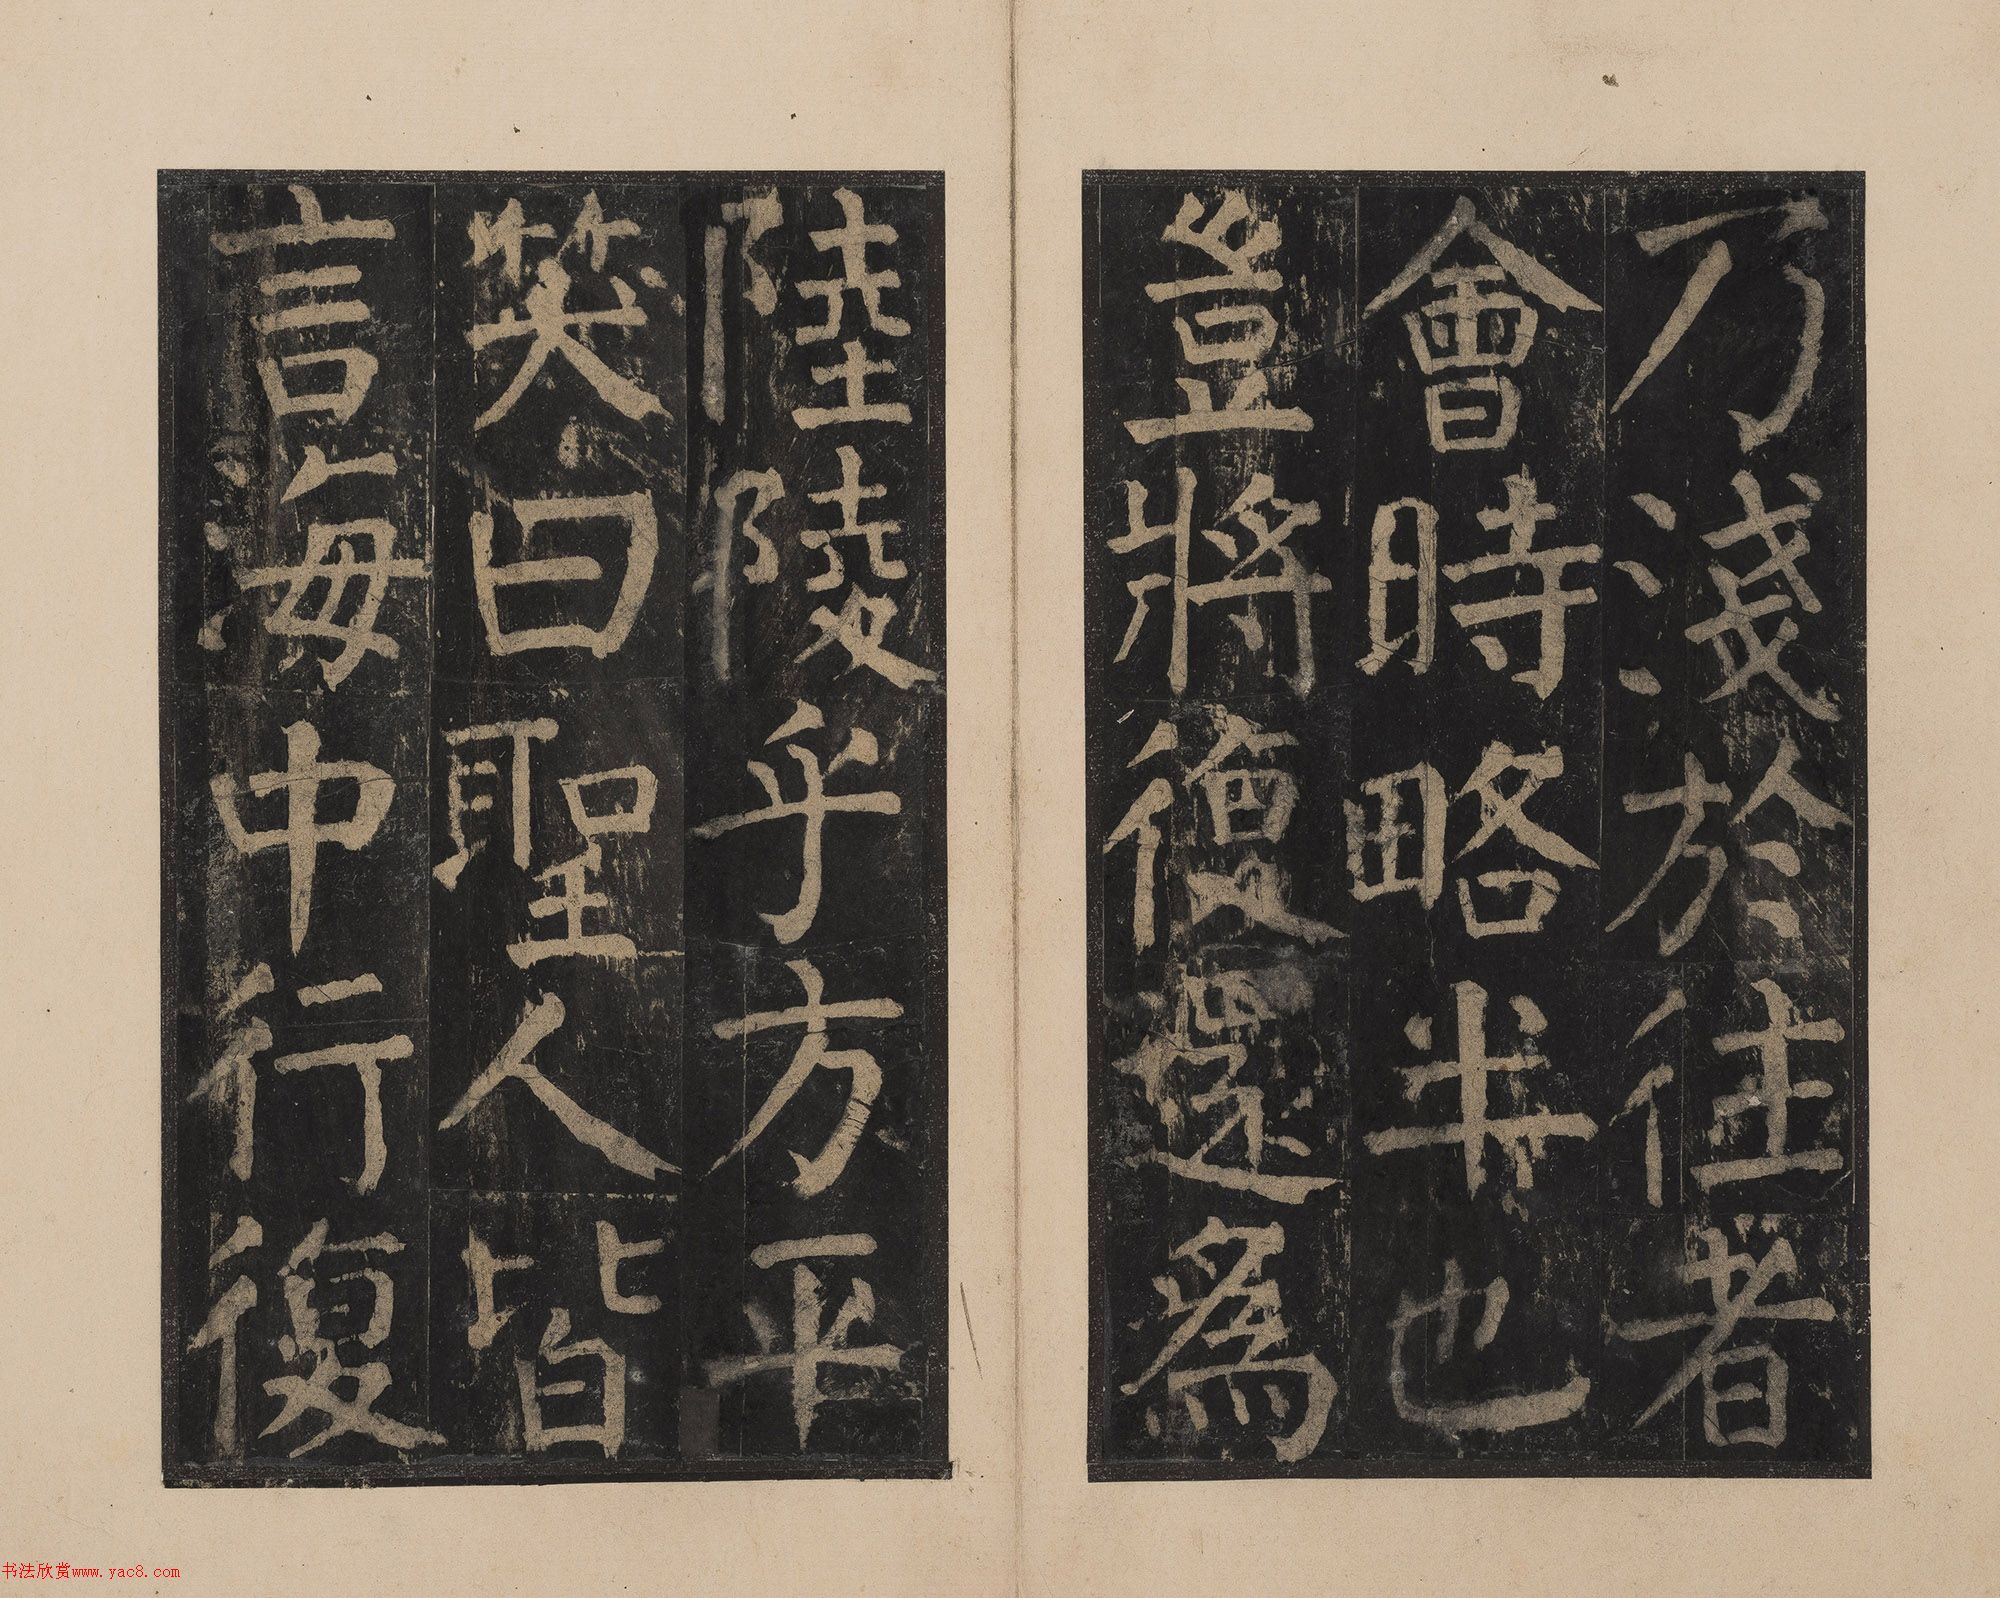 乃淺於往者
會時略半也
豈將復還為
陸陵乎方平
笑曰聖人皆
言海中行復
书法欣赏www.yac8.com